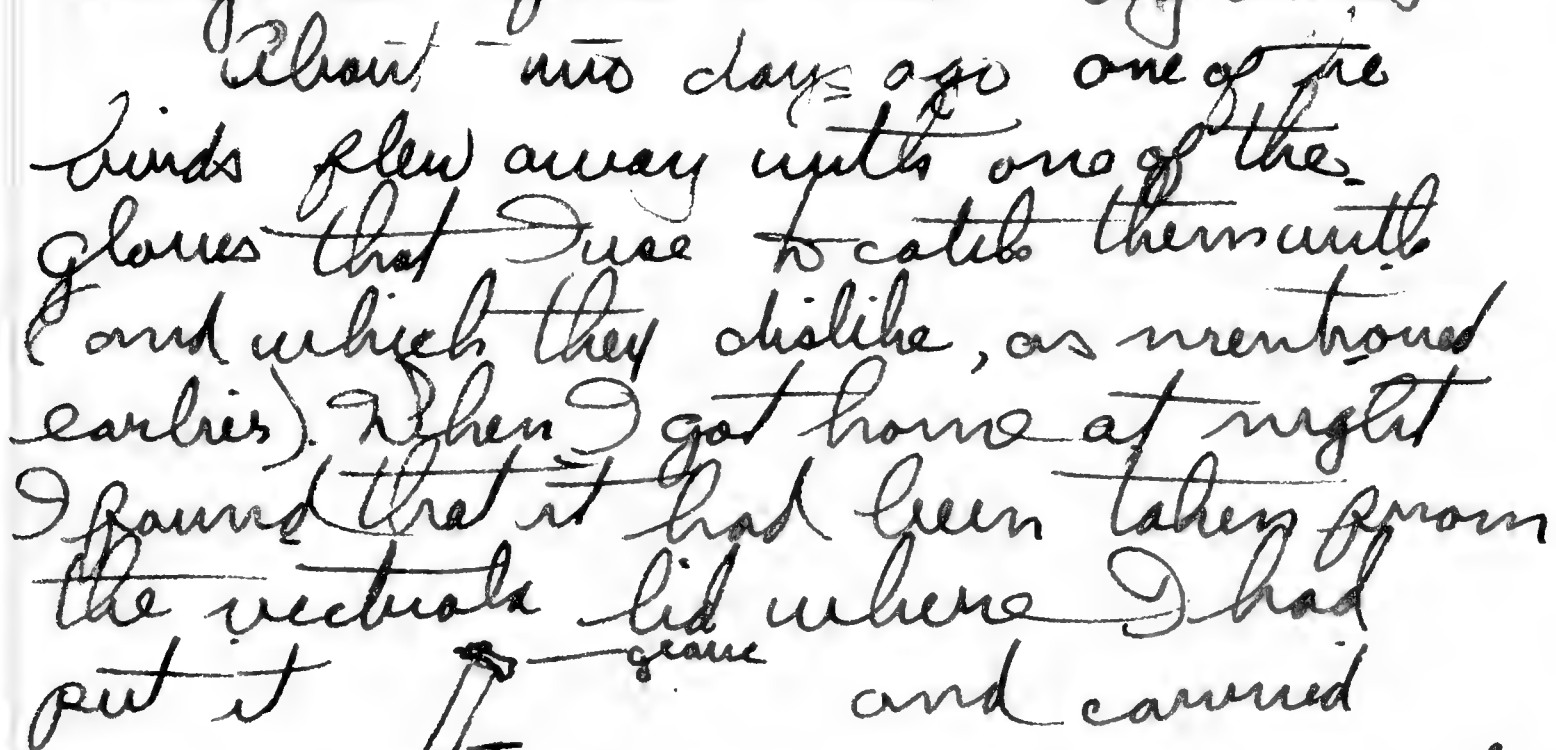 About two days ago one of the
birds flew away with one of the
gloves that I use to catch them with
(and which they dislike, as mentioned
earlier). When I got home at night
I found that it had been taken from
the victrola lid where I had
glove
put it and carried